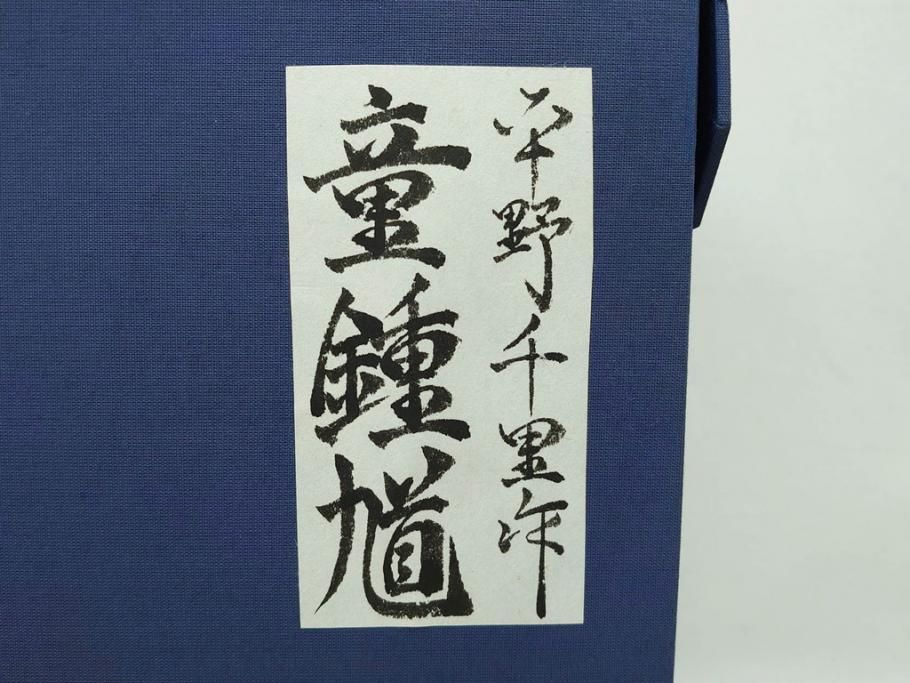 平野千里作
童鍾馗